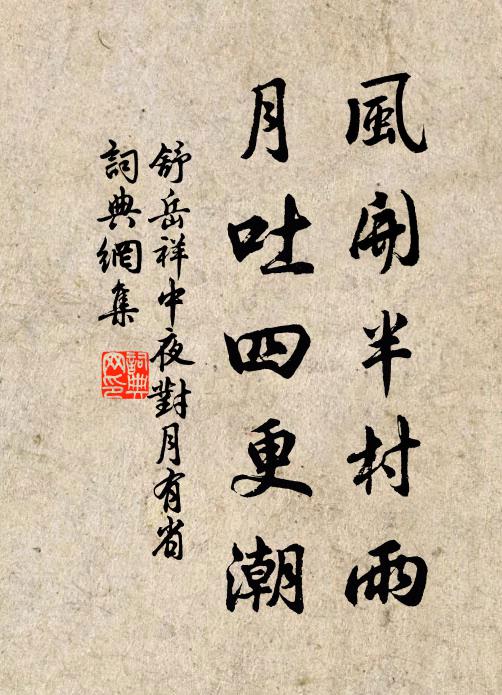 風開半村雨
月吐四更潮
舒岳祥中夜對月有省
詞典網集
詞典網印